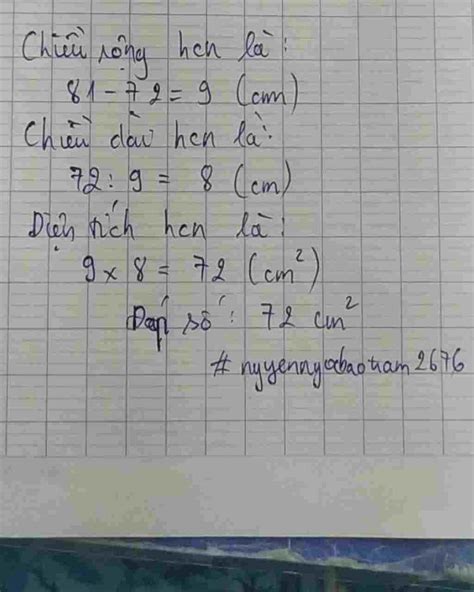 Chiều rộng hcn là:
81 - 72 = 9 (cm)
Chiều dài hcn là:
72 : 9 = 8 (cm)
Diện tích hcn là:
9 x 8 = 72 (cm²)
Đáp số: 72 cm²
# nyyennyocbaotram2676